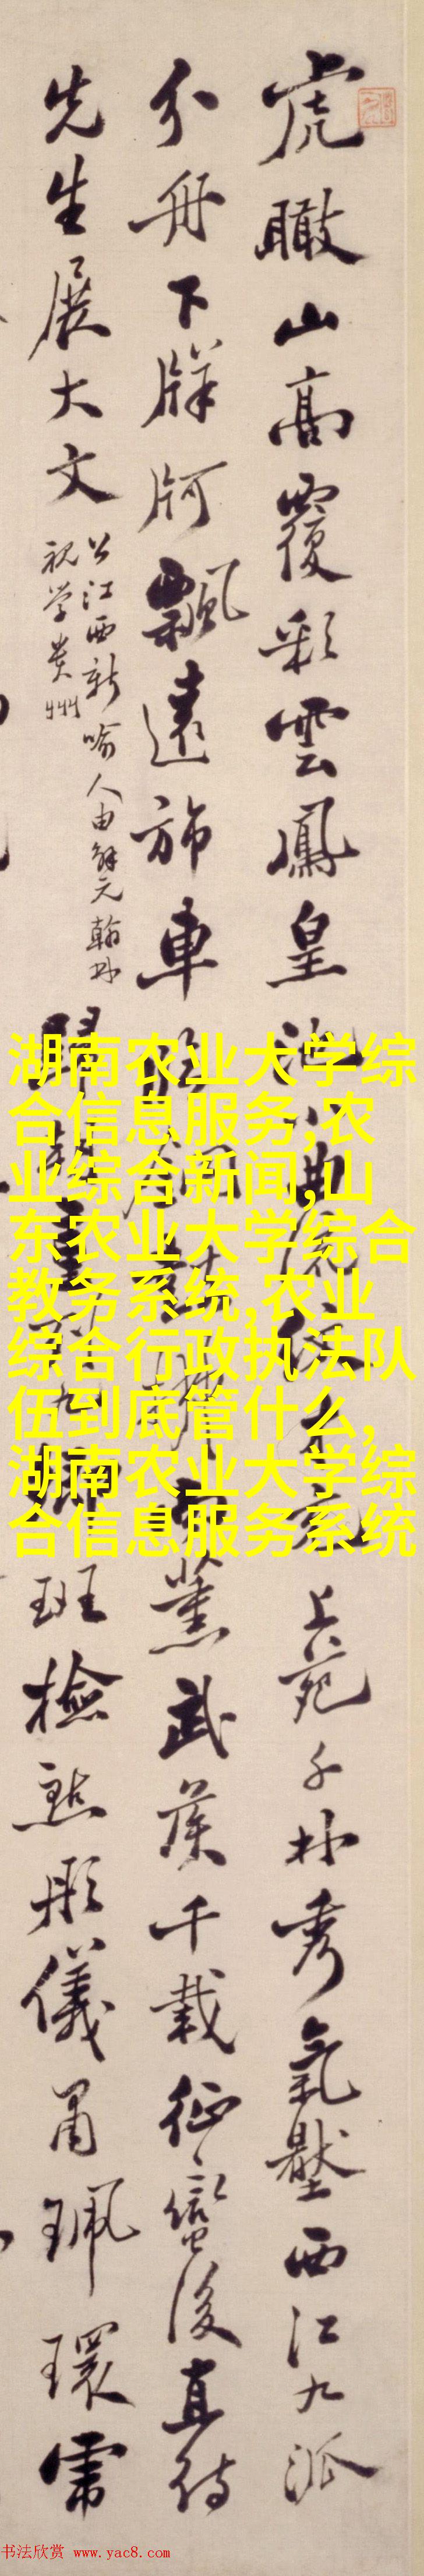 虎瞰山高覆彩雲鳳皇池
上苑千林秀氣壓西江九派
分舟下牂牁飄遠旆車
薰武侯千載征蠻後直待
先生展大文
公江西新喻人由解元翰林
視學貴州
班檢點彤儀肅珮環需
湖南农业大学综
合信息服务,农
业综合新闻,山
东农业大学综合
教务系统,农业
综合行政执法队
伍到底管什么,
湖南农业大学综
合信息服务系统
书法欣赏 www.yac8.com